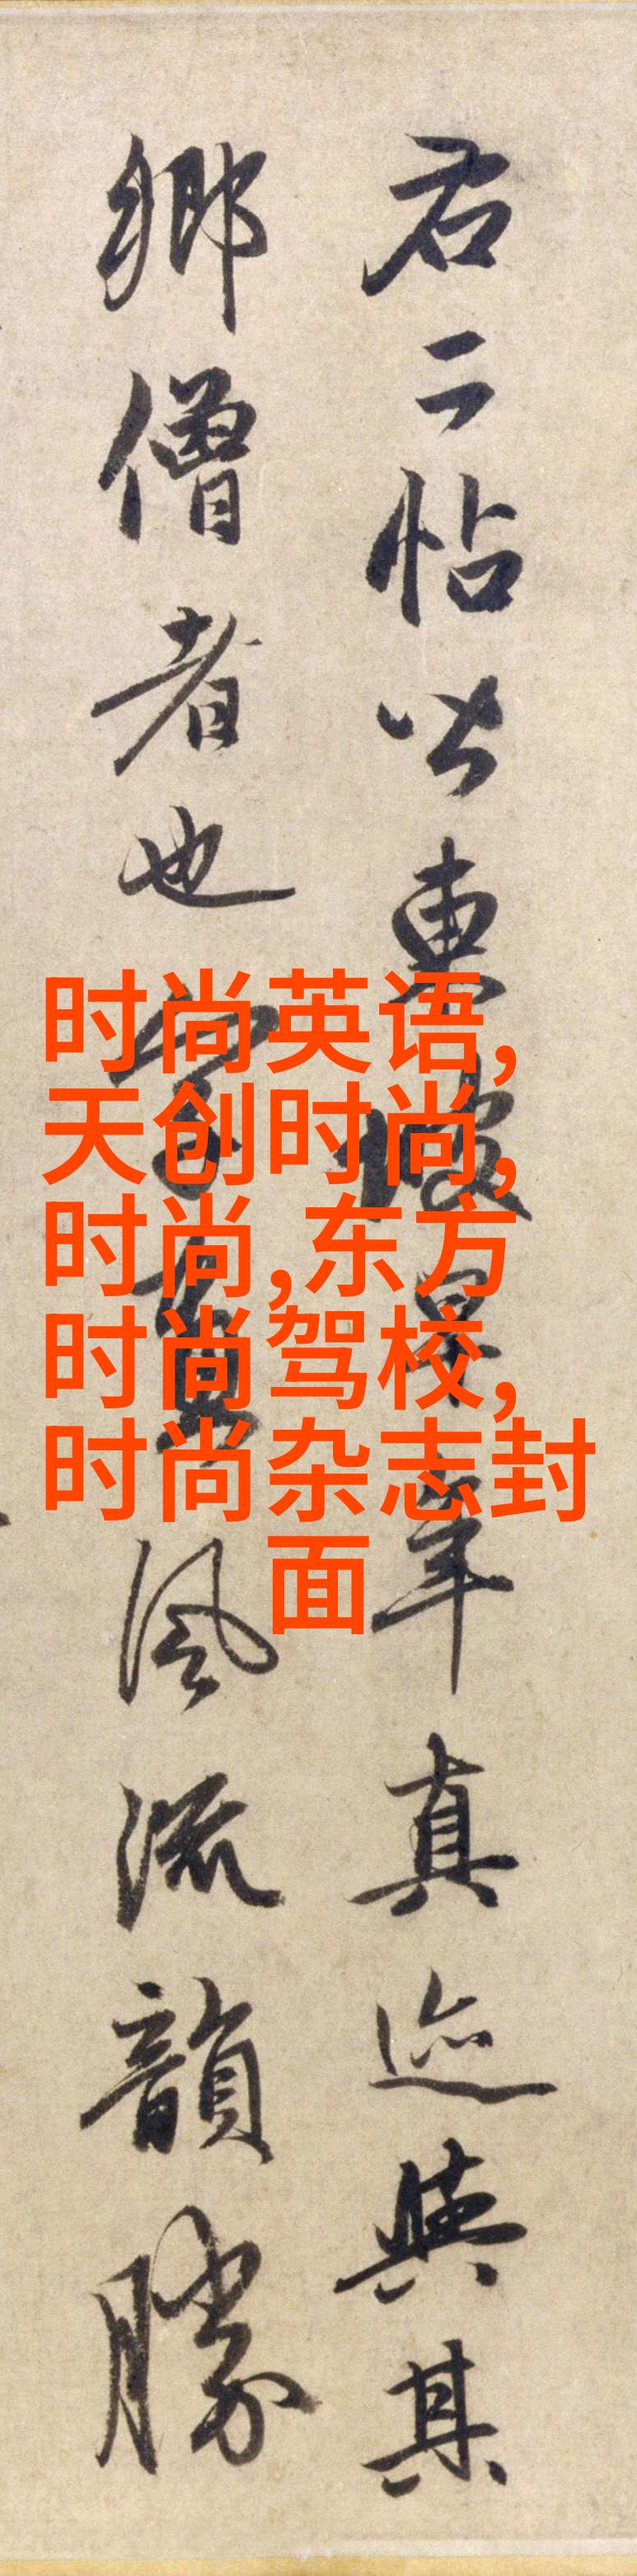 右二帖皆東坡早年真迹與其
鄉僧者也字畫風流韻勝
时尚英语,
天创时尚,
时尚,东方
时尚驾校,
时尚杂志封
面